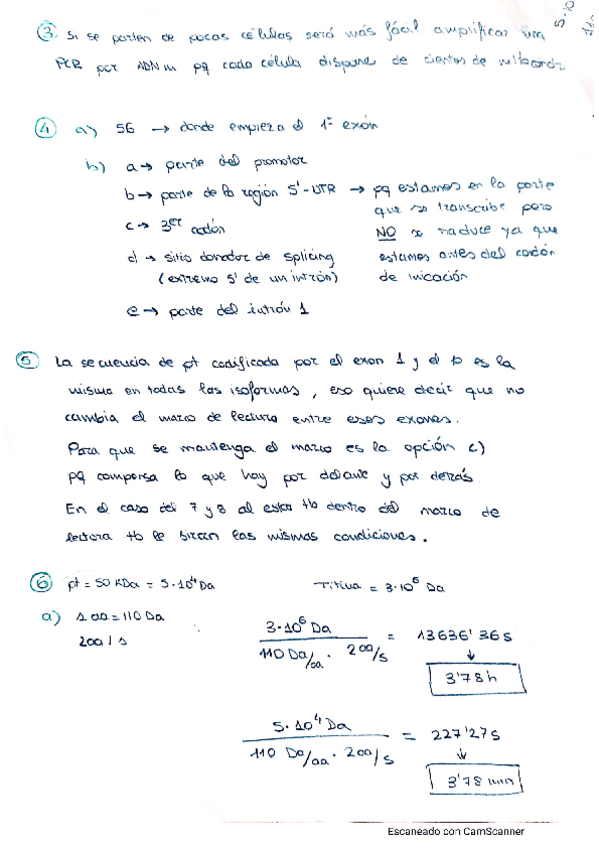 ③ Si se parten de pocas células será más fácil amplificar um
PCR por ADNm pq cada célula dispone de cientos de mitocondr
④ a) 56 → donde empieza el 1er exón
b) a → parte del promotor
b → parte de la región 5'-UTR → pq estamos en la parte
que se transcribe pero
c → 3er codón
NO se traduce ya que
d → sitio donador de splicing
estamos antes del codón
(extremo 5' de un intrón)
de iniciación
e → parte del intrón 1
⑤ La secuencia de pt codificada por el exon 1 y el 10 es la
misma en todas las isoformas, eso quiere decir que no
cambia el marco de lectura entre esos exones.
Para que se mantenga el marco es la opción c)
pq compensa lo que hay por delante y por detrás.
En el caso del 7 y 8 al estar tb dentro del marco de
lectura tb le siguen las mismas condiciones.
⑥ pt = 50 KDa = 5·10⁴ Da
Titina = 3·10⁶ Da
a) 1 aa = 110 Da
20aa / s
3·10⁶ Da / 110 Da/aa · 2 aa/s = 13636'36 s
↓
3'78 h
5·10⁴ Da / 110 Da/aa · 2 aa/s = 227'27 s
↓
3'78 min
Escaneado con CamScanner